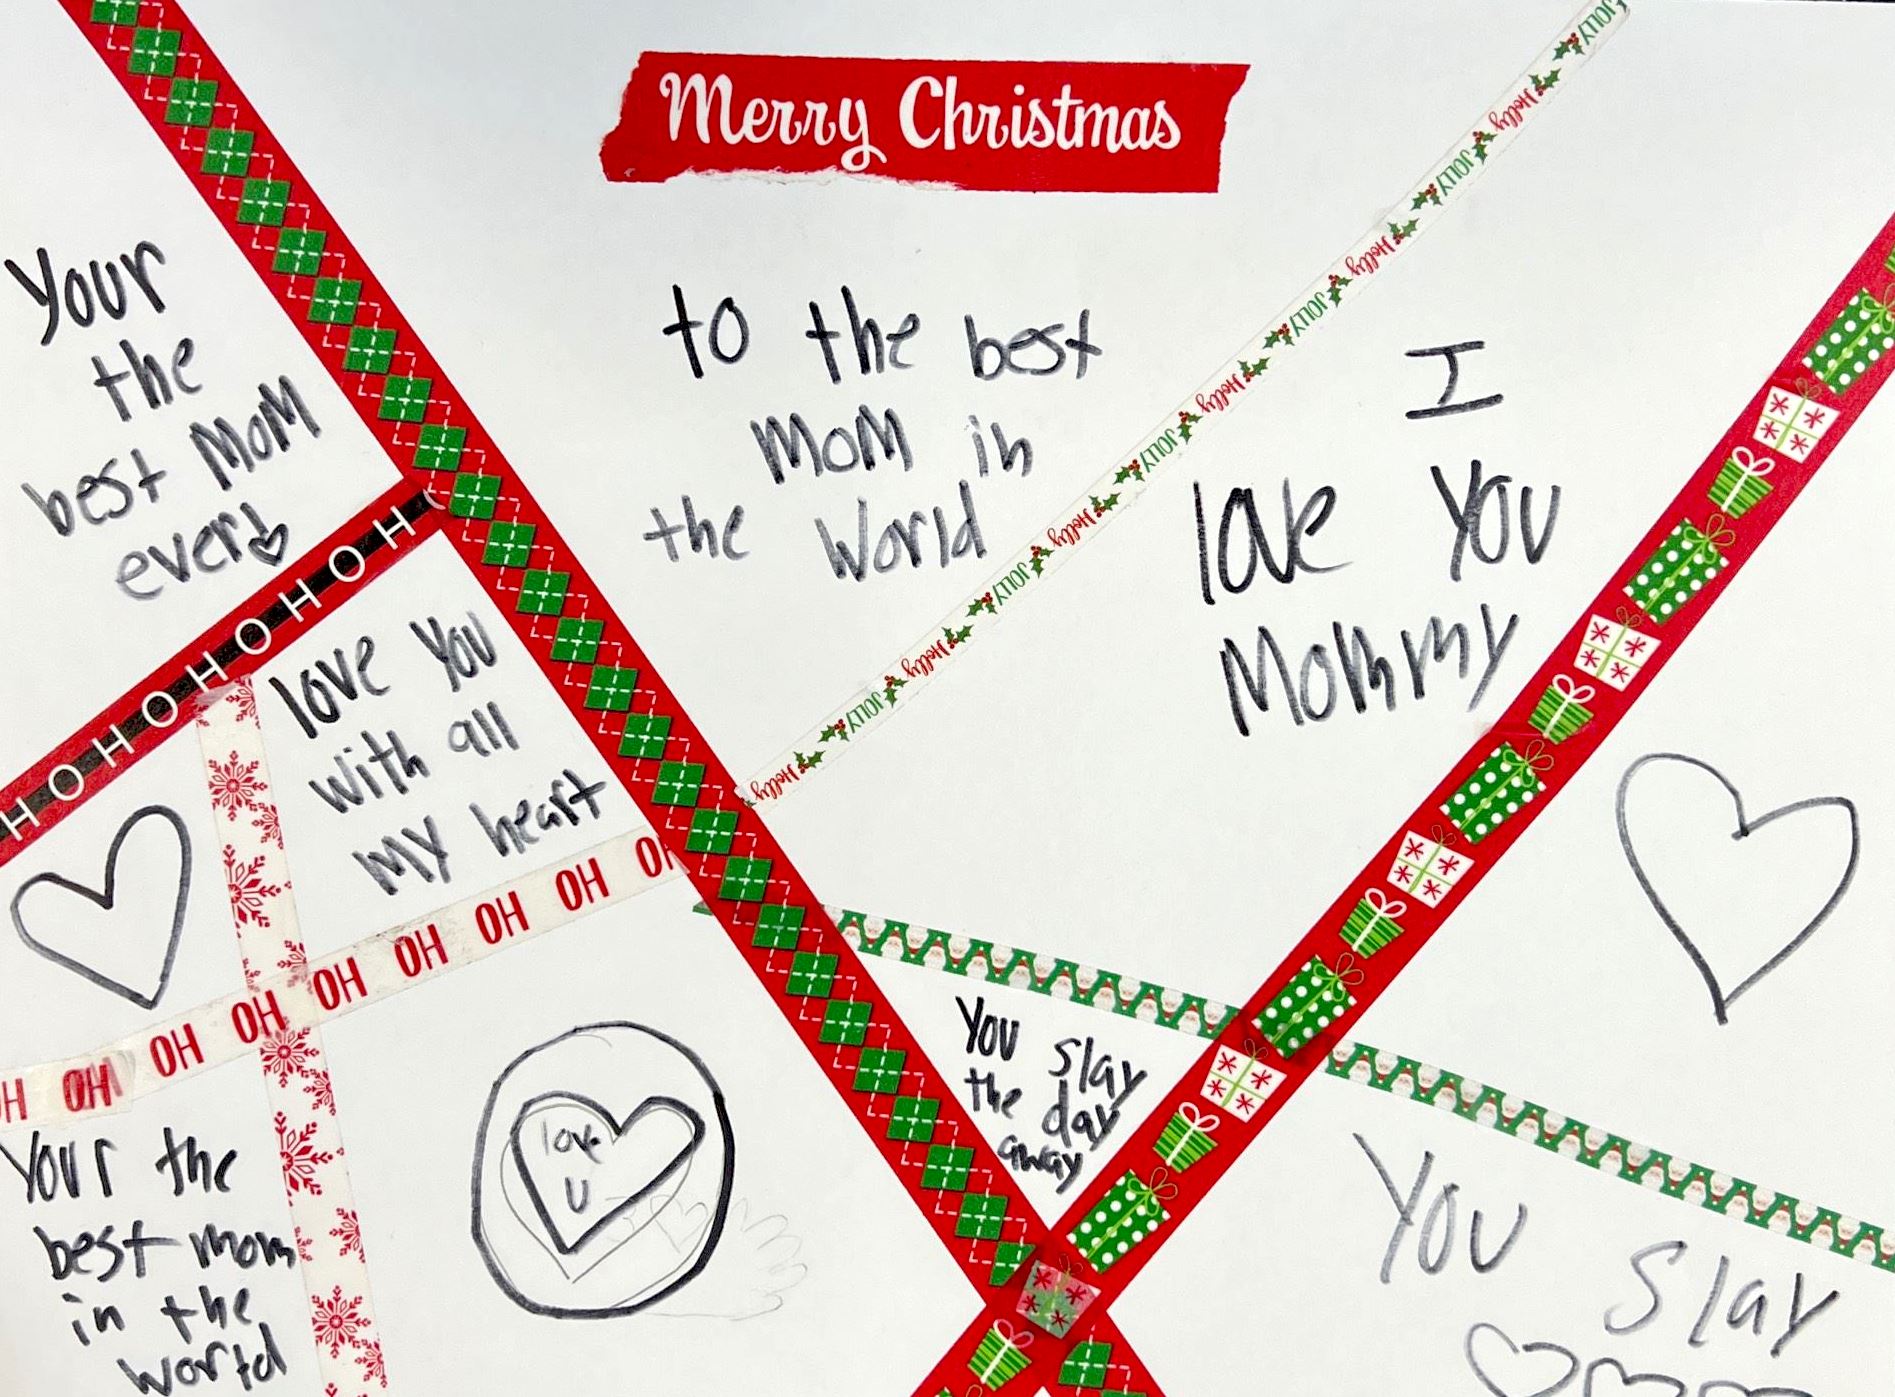 Merry Christmas
Your
the
best MOM
ever
to the best
MOM in
the World
I
love You
Mommy
JOLLY Holly JOLLY Holly JOLLY Holly JOLLY Holly JOLLY Holly JOLLY Holly
HOHOHOHOHOH
love You
with all
MY heart
OH OH OH OH OH OH OH
You slay
the day
away
love
U
Your the
best mom
in the
world
You
Slay